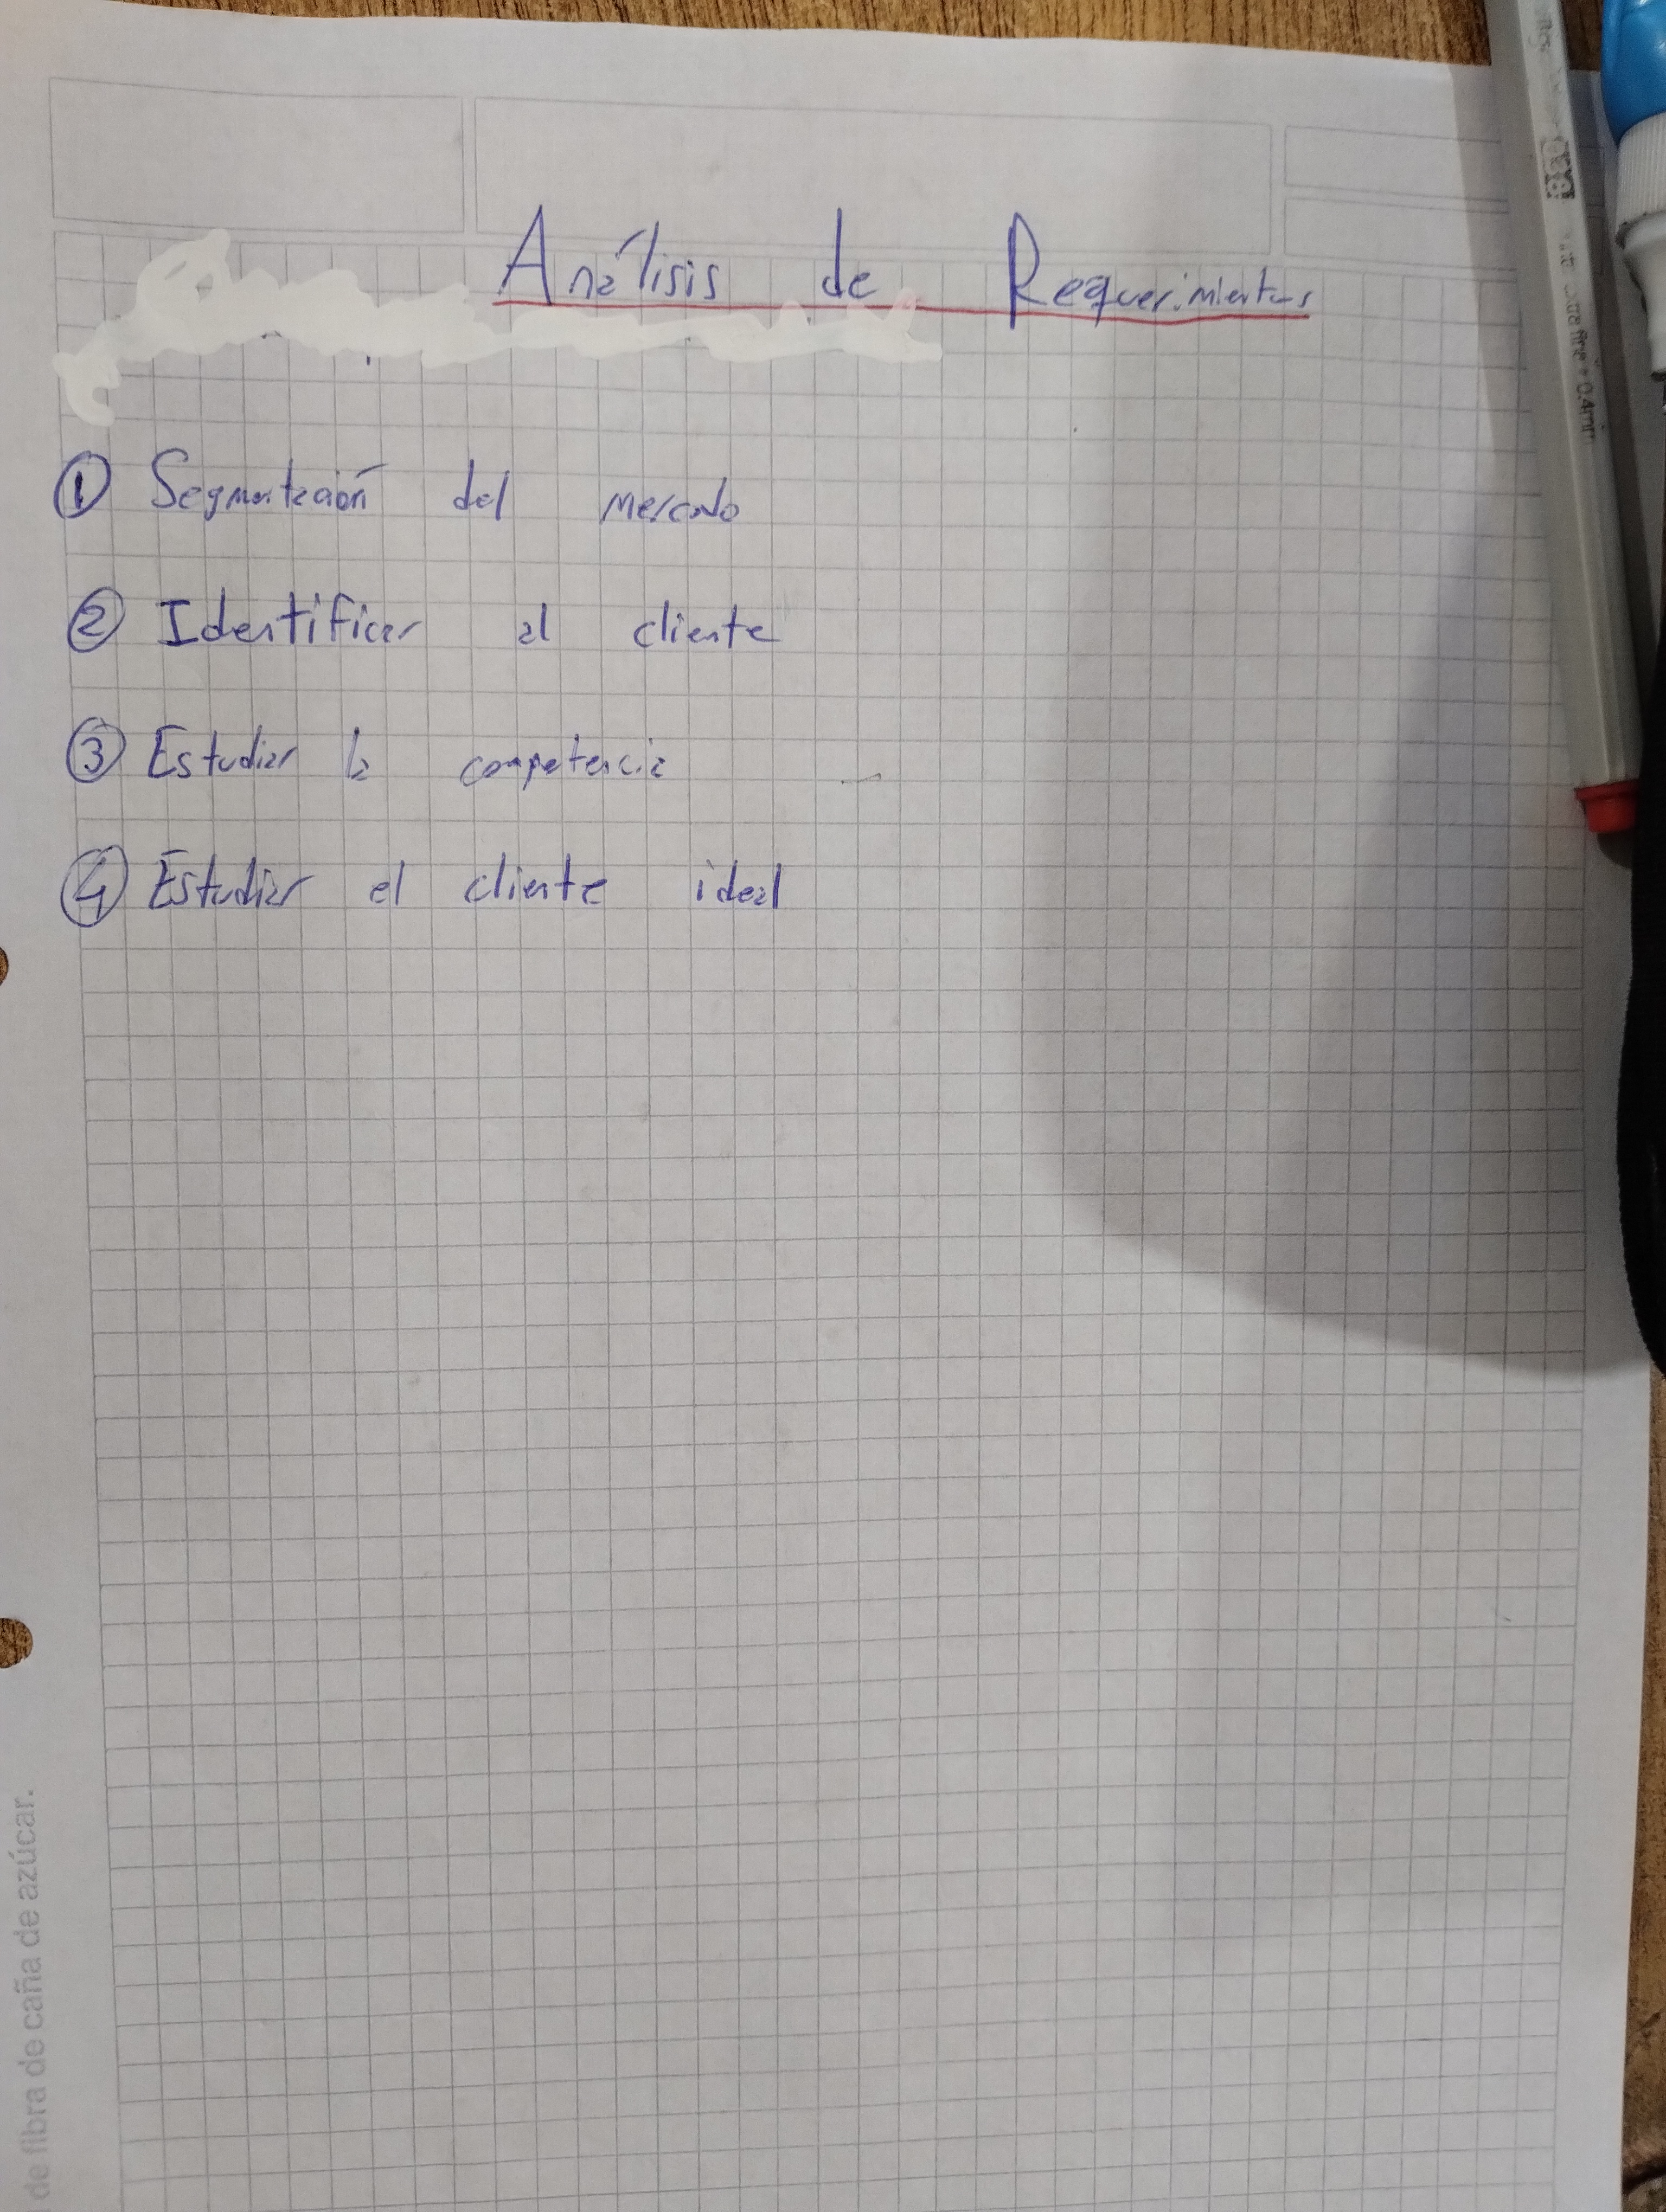 Análisis de Requerimientos
① Segmentación del mercado
② Identificar al cliente
③ Estudiar la competencia
④ Estudiar el cliente ideal
de fibra de caña de azúcar.